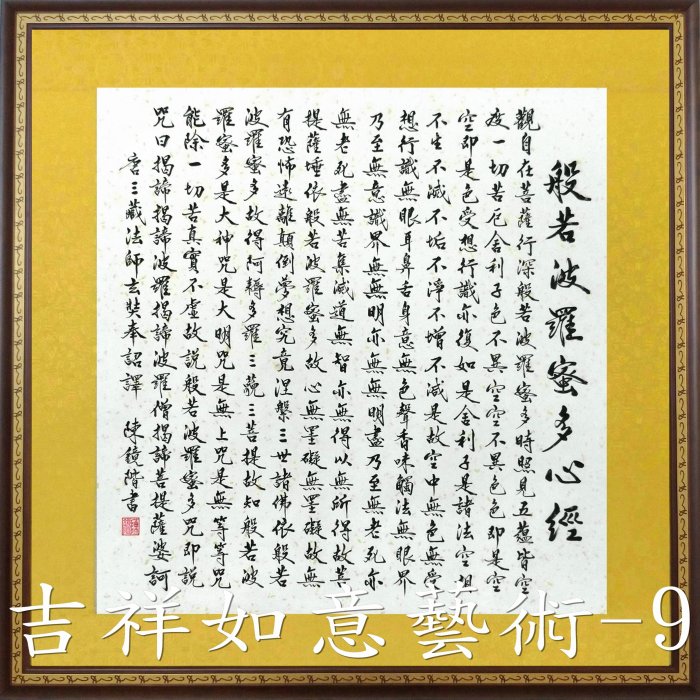 般若波羅蜜多心經
觀自在菩薩行深般若波羅蜜多時照見五蘊皆空
度一切苦厄舍利子色不異空空不異色色即是空
空即是色受想行識亦復如是舍利子是諸法空相
不生不滅不垢不淨不增不減是故空中無色無受
想行識無眼耳鼻舌身意無色聲香味觸法無眼界
乃至無意識界無無明亦無無明盡乃至無老死亦
無老死盡無苦集滅道無智亦無得以無所得故菩
提薩埵依般若波羅蜜多故心無罣礙無罣礙故無
有恐怖遠離顛倒夢想究竟涅槃三世諸佛依般若
波羅蜜多故得阿耨多羅三藐三菩提故知般若波
羅蜜多是大神咒是大明咒是無上咒是無等等咒
能除一切苦真實不虛故說般若波羅蜜多咒即說
咒曰揭諦揭諦波羅揭諦波羅僧揭諦菩提薩婆訶
唐三藏法師玄奘奉詔譯 陳鏡階書
吉祥如意藝術-9